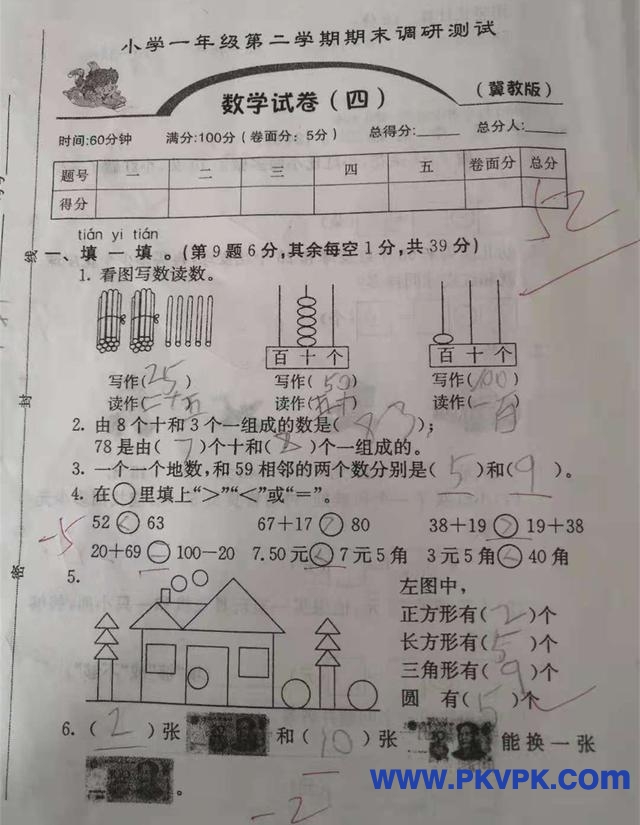 小学一年级第二学期期末调研测试
数学试卷(四)
(冀教版)
时间:60分钟 满分:100分(卷面分:5分) 总得分:____ 总分人:____
题号 一 二 三 四 五 卷面分 总分
得分
52
tián yi tián
一、填一填。(第9题6分,其余每空1分,共39分)
1. 看图写数读数。
百十个 百十个
写作(25) 写作(50) 写作(100)
读作(二十五) 读作(五十) 读作(一百)
2. 由8个十和3个一组成的数是(83);
78是由(7)个十和(8)个一组成的。
3. 一个一个地数,和59相邻的两个数分别是(5)和(9)。
4. 在○里填上“>”“<”或“=”。
52<63 67+17>80 38+19>19+38
-5
20+69=100-20 7.50元<7元5角 3元5角<40角
5.
左图中,
正方形有(2)个
长方形有(5)个
三角形有(9)个
圆 有(5)个
6. (2)张 和(10)张 能换一张
。
-2
线
封
密
WWW.PKVPK.COM